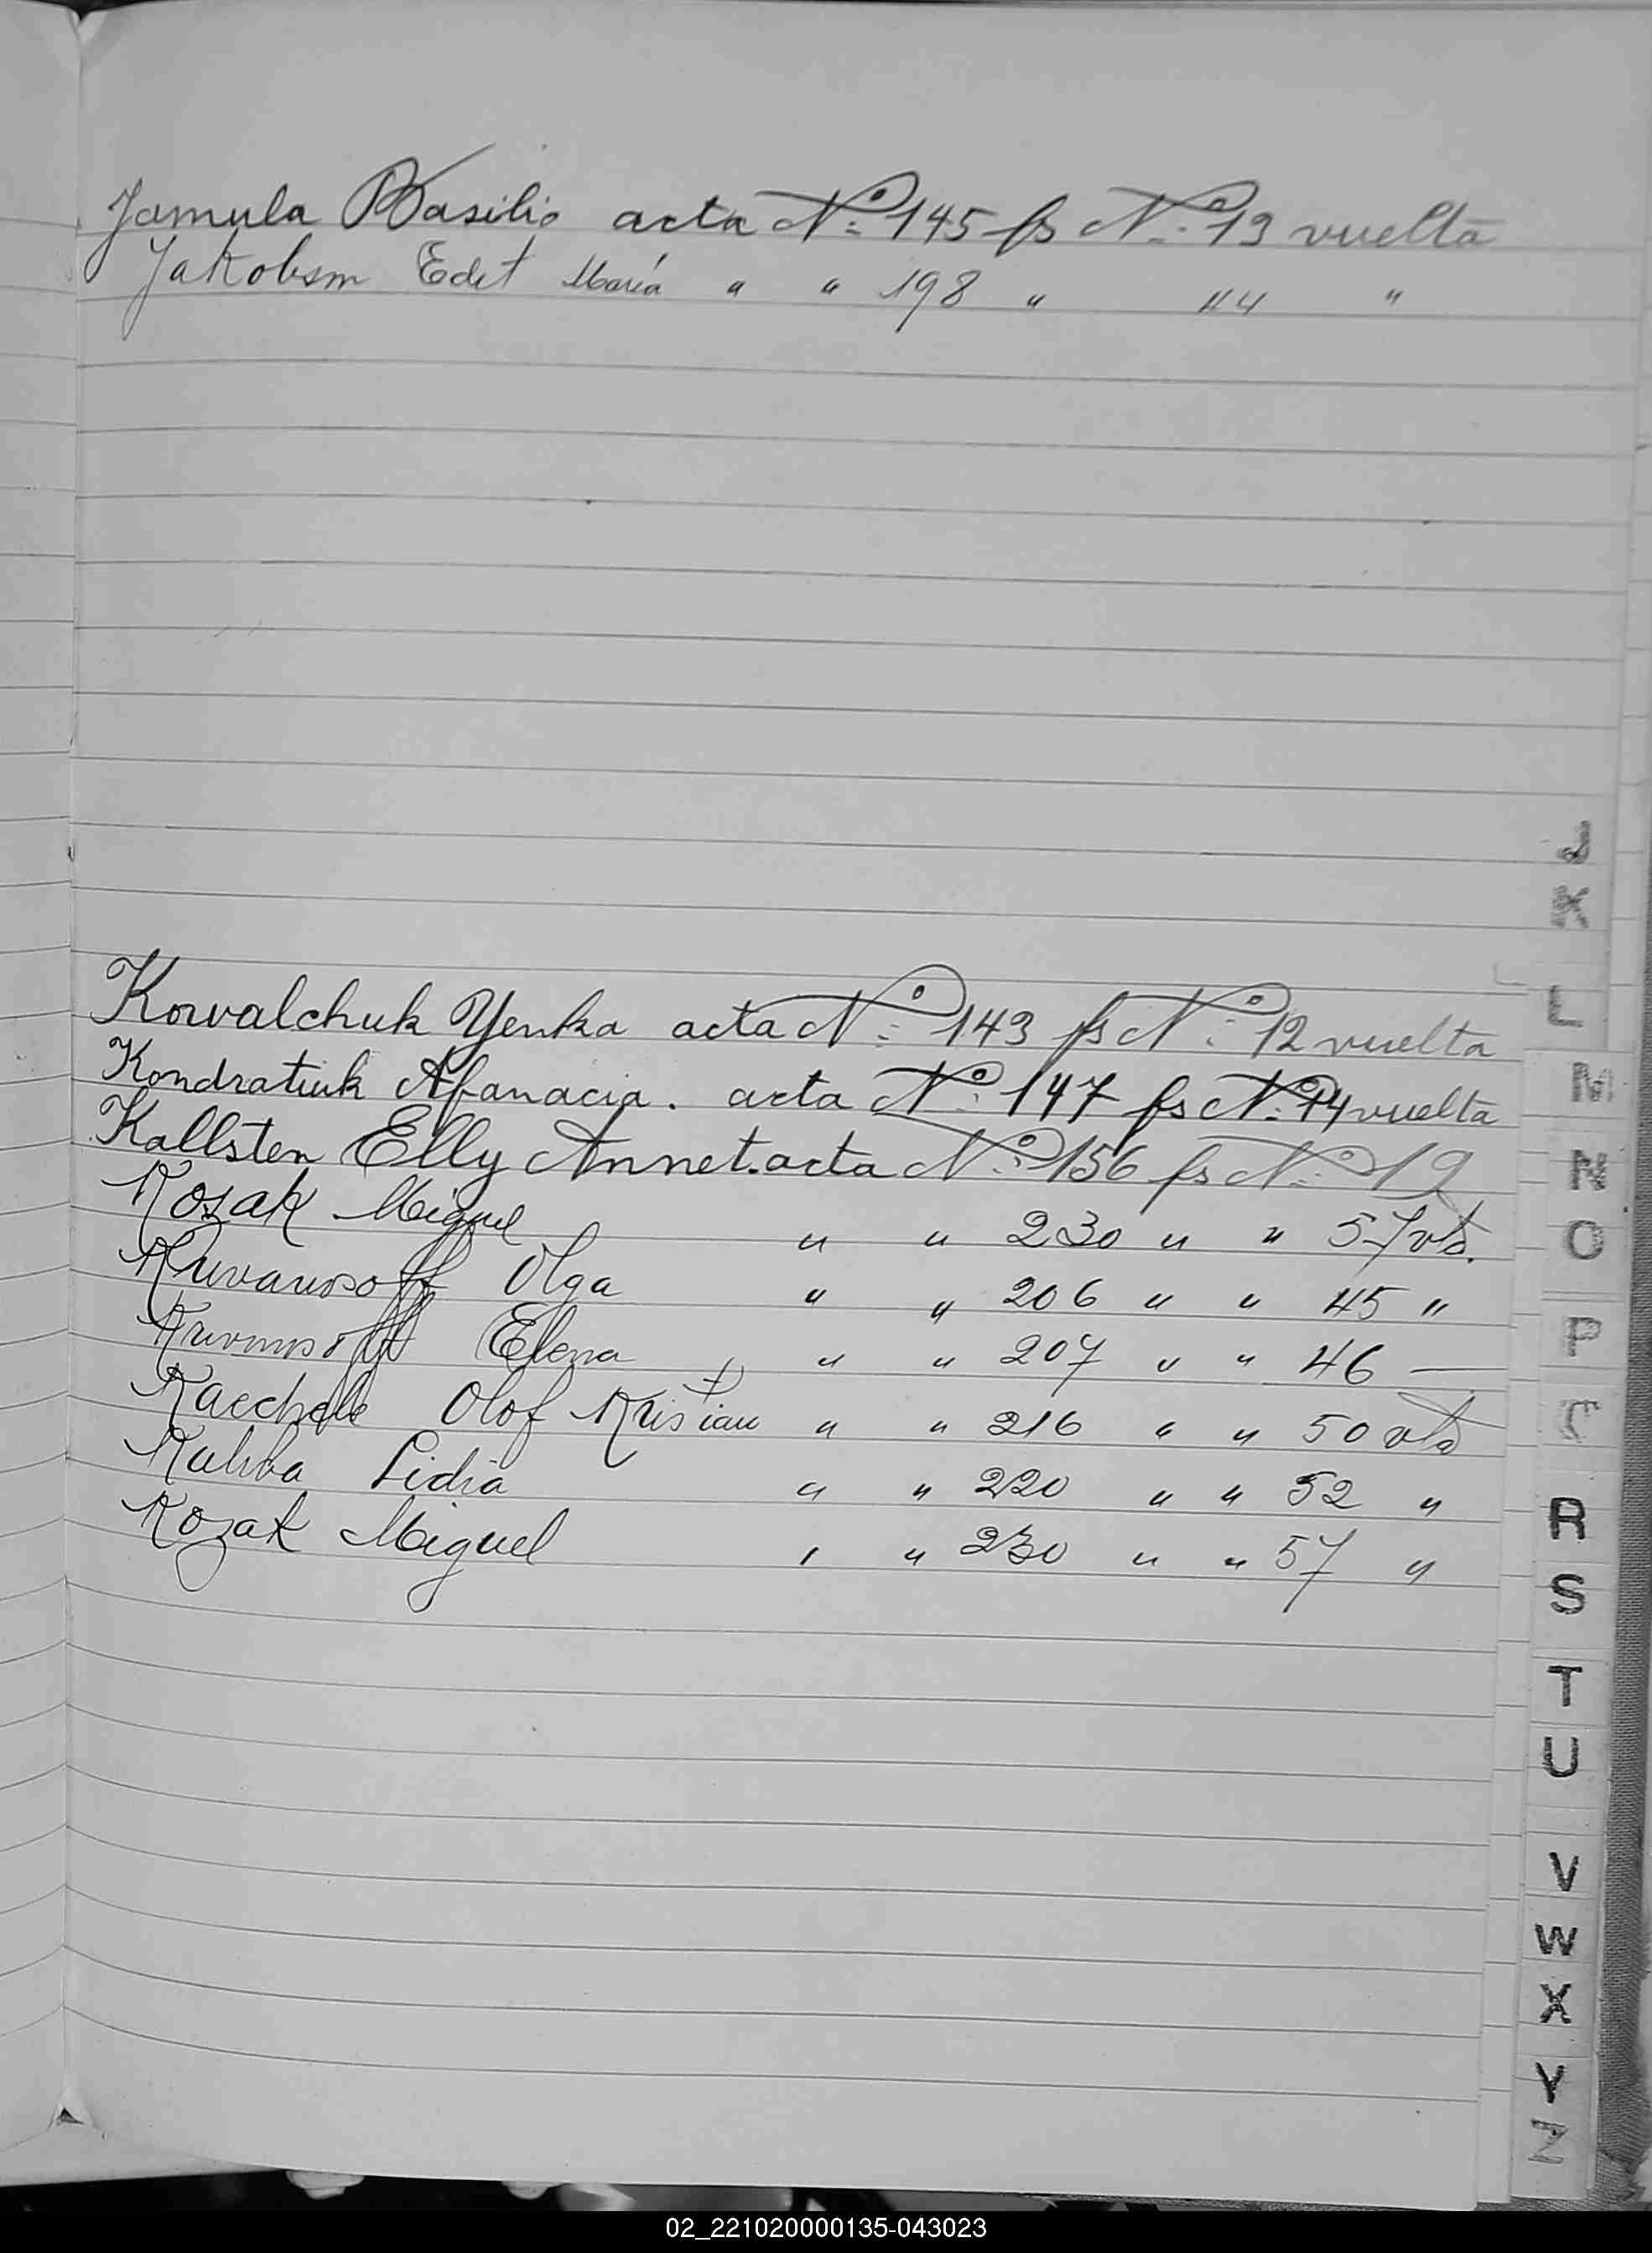 Jamula Basilio acta Nº 145 fs Nº 13 vuelta
Jakobsm Edit María " " 198 " 44 "
J
K
Kowalchuk Yenka acta Nº 143 fs Nº 12 vuelta
L
Kondratiuk Afanacia. acta Nº 147 fs Nº 14 vuelta
M
Kallsten Elly Annet. acta Nº 156 fs Nº 19
N
Kozak Miguel " " 230 " " 57 vta.
O
Olga " " 206 " " 45 "
P
Elena " " " 207 " " 46 —
Kaechele Olof Kristian " " 216 " " 50 vta
Lidia " " 220 " " 52 "
R
Kozak Miguel " " 230 " " 57 "
S
T
U
V
W
X
Y
Z
02_221020000135-043023